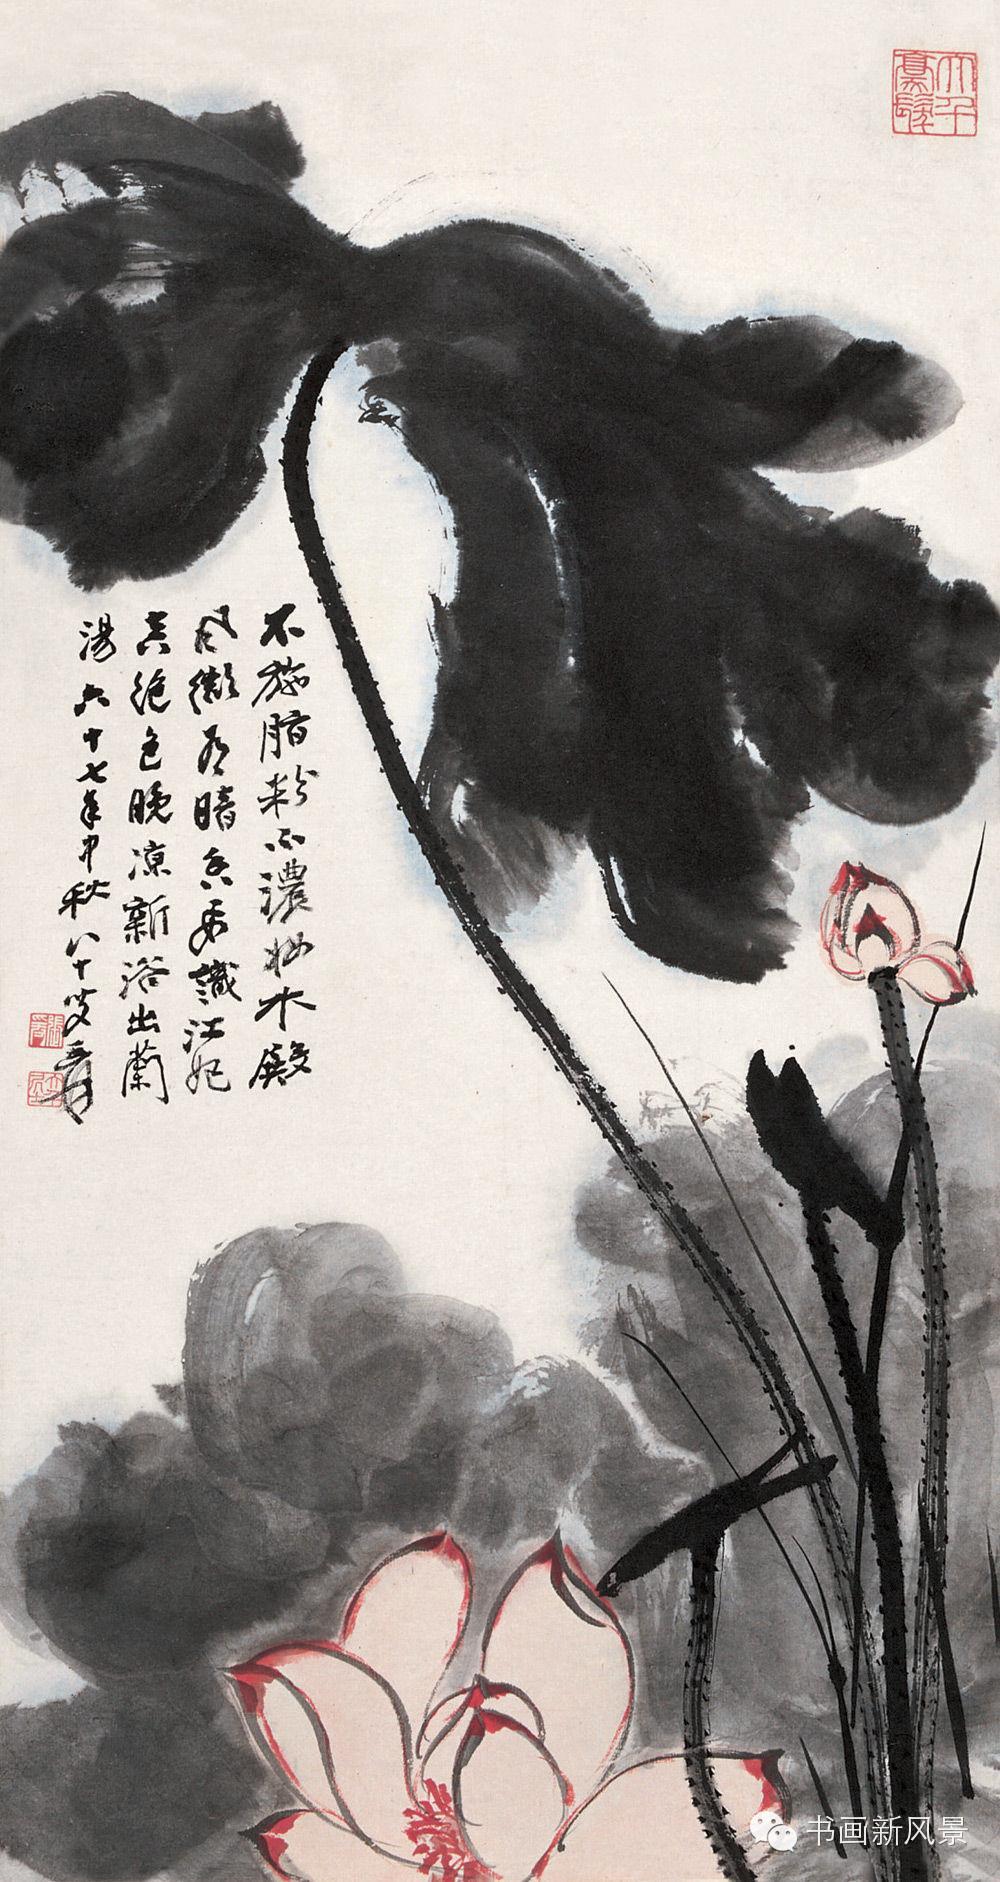 不施脂粉不濃妝水殿
風微有暗香要識江妃
真絕色晚涼新浴出蘭
湯六十七年中秋八十叟爰
書画新风景